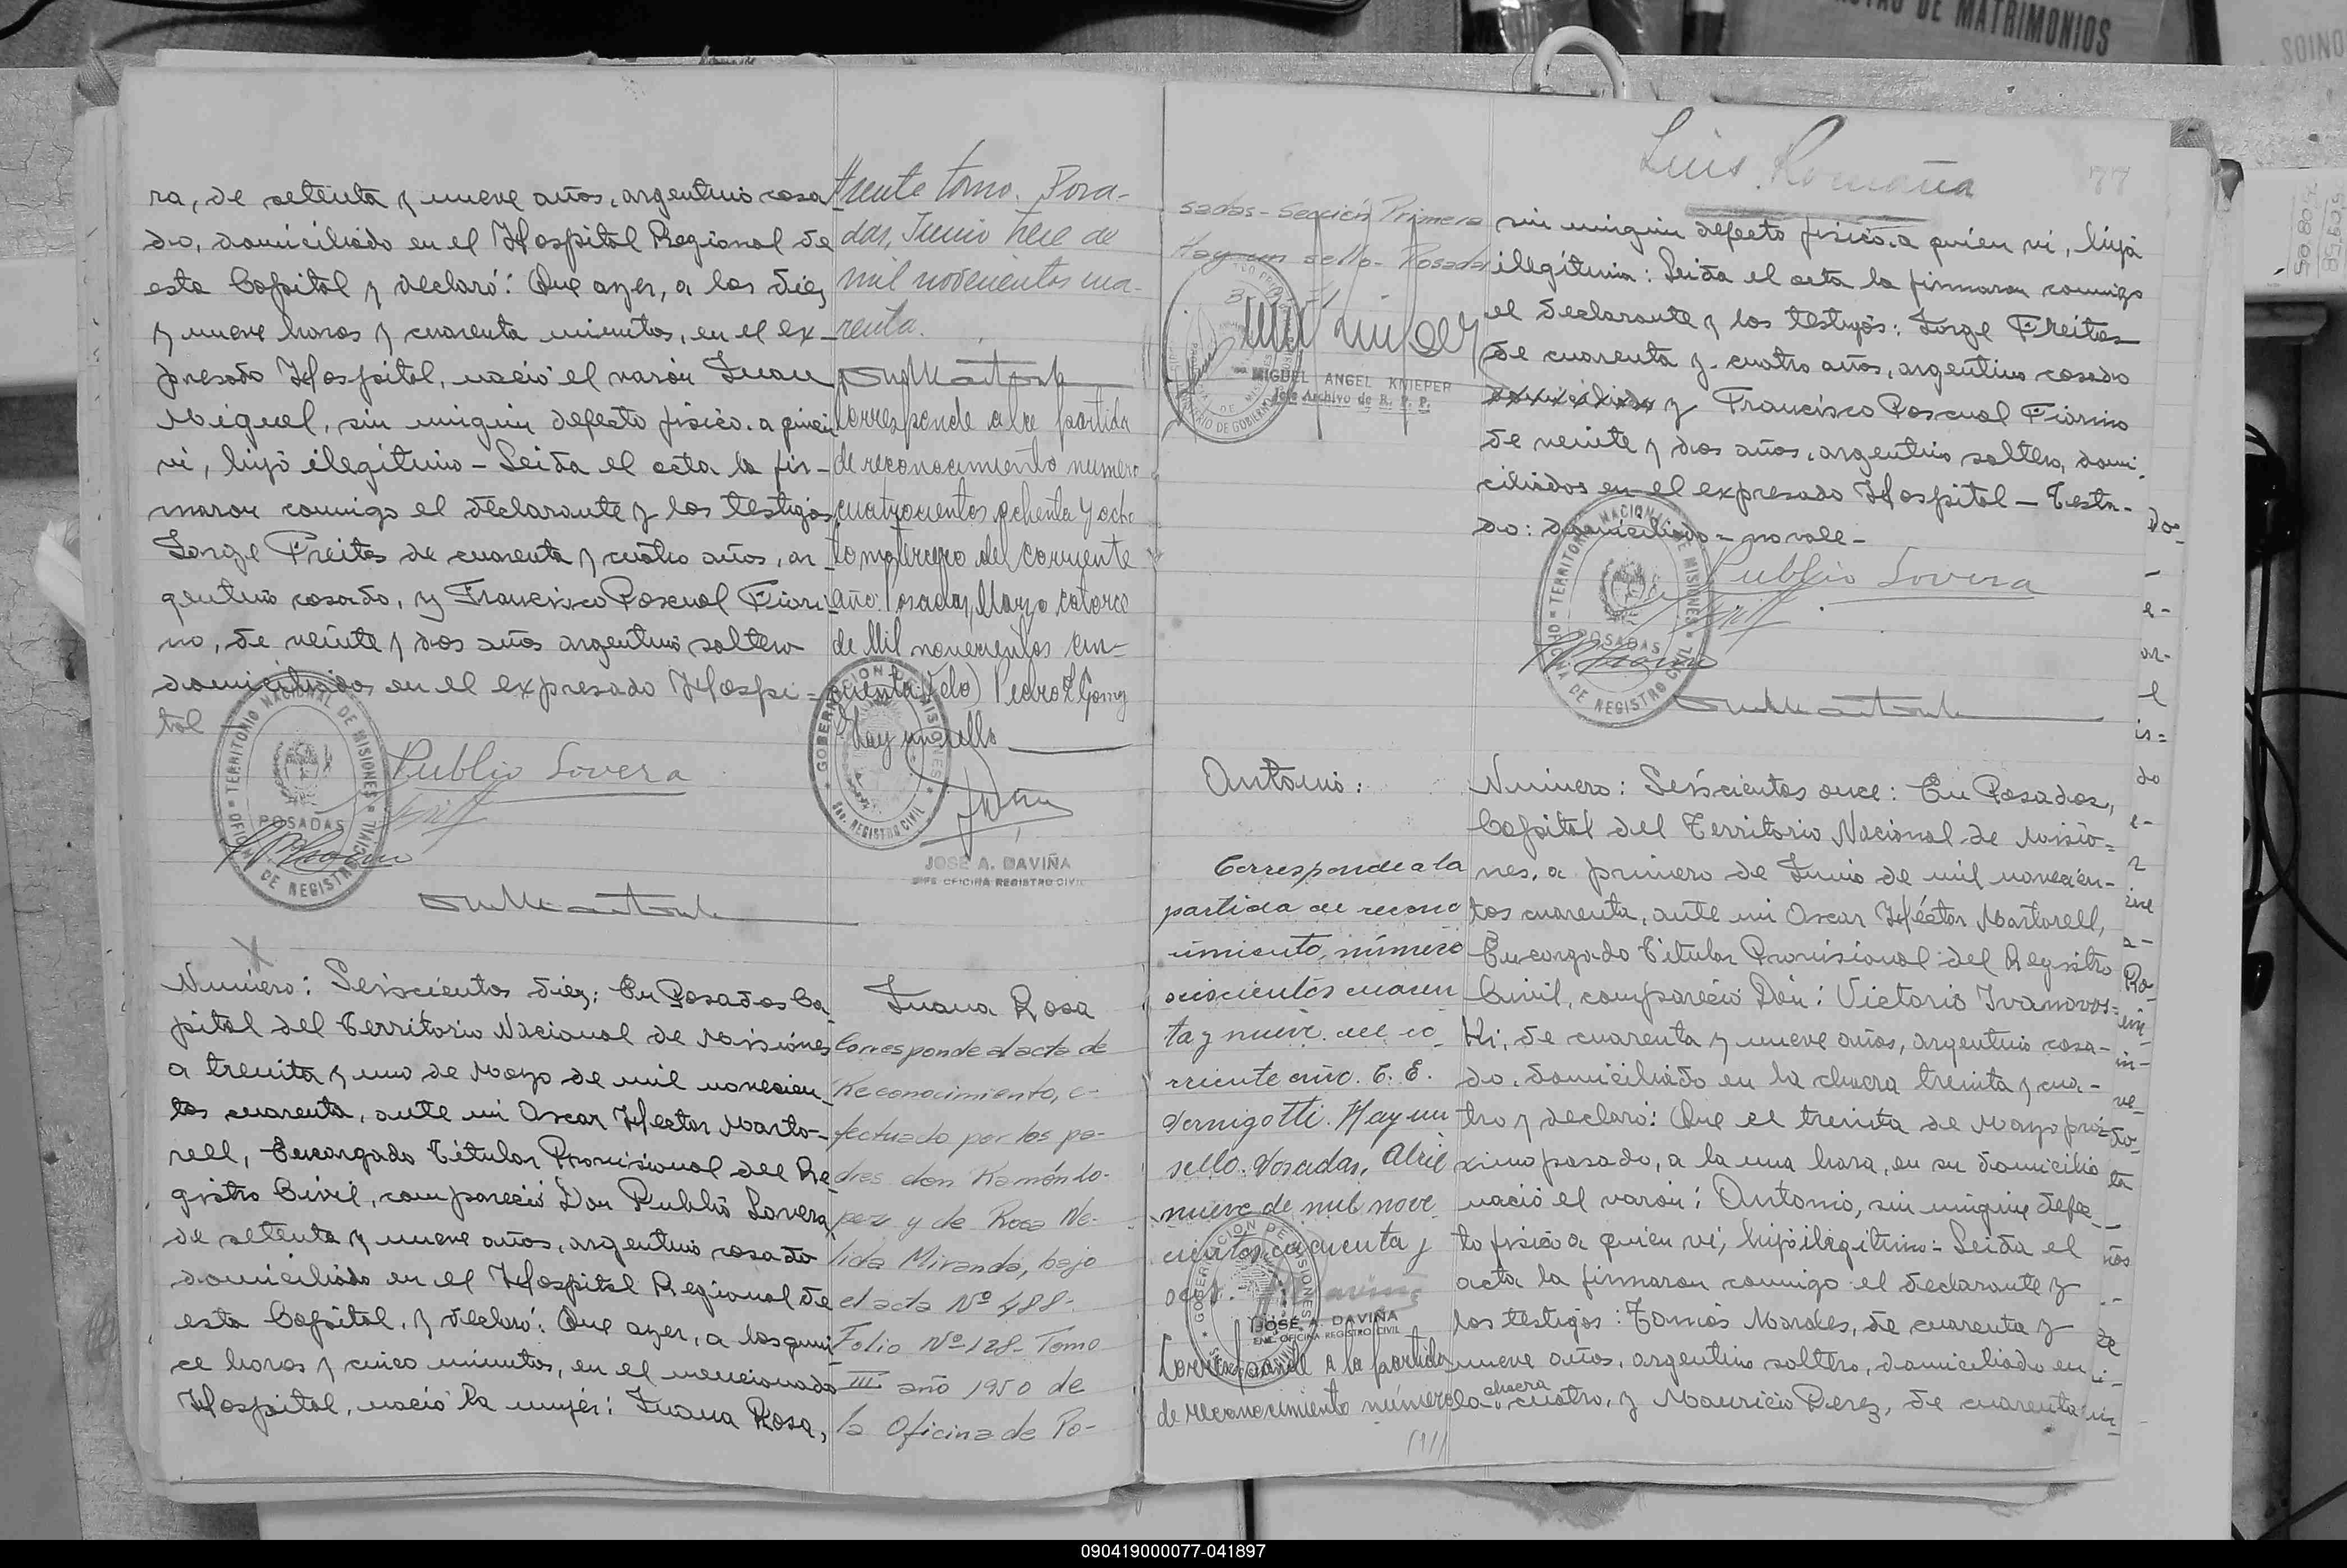 ra, de setenta y nueve años, argentino casa
do, domiciliado en el Hospital Regional de
esta Capital y declaró: Que ayer, a las diez
y nueve horas y cuarenta minutos, en el ex-
presado Hospital, nació el varón Juan
Miguel, sin ningun defecto fisico. a quien
vi, hijo ilegitimo - Leida el acta la fir-
maron conmigo el declarante y los testigos
Jorge Freites de cuarenta y cuatro años, ar-
gentino casado, y Francisco Pascual Fiori-
no, de veinte y dos años argentino soltero
domiciliados en el expresado Hospi-
tal
Publio Lovera
TERRITORIO NACIONAL DE MISIONES
POSADAS
OFICINA DE REGISTRO CIVIL
Numero: Seiscientos diez: En Posadas Ca
pital del Territorio Nacional de Misiones
a treinta y uno de Mayo de mil novecien-
tos cuarenta, ante mi Oscar Hector Marto-
rell, Encargado Titular Provisional del Re
gistro Civil, compareció Don Publio Lovera
de setenta y nueve años, argentino casado
domiciliado en el Hospital Regional de
esta Capital, y declaró: Que ayer, a las quin
ce horas y cinco minutos, en el mencionado
Hospital, nació la mujer: Juana Rosa,
rriente tomo. Posa-
das, Junio trece de
mil novecientos cua-
renta.
Corresponde a la partida
de reconocimiento numero
cuatrocientos ochenta y ocho
tomo tercero del corriente
año. Posadas, Marzo catorce
de Mil novecientos cin-
cuenta. (Fdo) Pedro E Gomez
Hay un sello
GOBERNACION DE MISIONES
REGISTRO CIVIL
JOSE A. DAVIÑA
JEFE OFICINA REGISTRO CIVIL
Juana Rosa
Corresponde al acta de
Reconocimiento, e-
fectuado por los pa-
dres don Ramón Lo-
pez y de Rosa Ne-
lida Miranda, bajo
el acta Nº 488-
Folio Nº 128- Tomo
III año 1950 de
la Oficina de Po-
sadas- Sección Primera
Hay un sello- Posadas
MIGUEL ANGEL KNIEPER
Jefe Archivo de R. P. P.
Antonio:
Corresponde a la
partida de recono
cimiento, número
ochocientos cuaren
ta y nueve del co
rriente año. E. E.
Vernigotti. Hay un
sello. Posadas, Abril
nueve de mil nove
cientos cincuenta y
GOBERNACION DE MISIONES
JOSE A. DAVIÑA
ENC. OFICINA REGISTRO CIVIL
Corresponde a la partida
de reconocimiento número
Luis Romaña
77
sin ningun defecto fisico. a quien vi, hija
ilegitima: Leida el acta la firmaron conmigo
el declarante y los testigos: Jorge Freites
de cuarenta y cuatro años, argentino casado
domiciliado y Francisco Pascual Fiorino
de veinte y dos años, argentino soltero, domi-
ciliados en el expresado Hospital - Testa-
do: domiciliado = no vale -
Publio Lovera
TERRITORIO NACIONAL DE MISIONES
POSADAS
OFICINA DE REGISTRO CIVIL
Numero: Seiscientos once: En Posadas,
Capital del Territorio Nacional de Misio-
nes, a primero de Junio de mil novecien-
tos cuarenta, ante mi Oscar Héctor Martorell,
Encargado Titular Provisional del Registro
Civil, compareció Don: Victorio Ivanovos-
ki, de cuarenta y nueve años, argentino casa-
do, domiciliado en la chacra treinta y cua-
tro y declaró: Que el treinta de Mayo pró-
ximo pasado, a la una hora, en su domicilio
nació el varón: Antonio, sin ningun defec
to fisico a quien vi, hijo ilegitimo: Leida el
acta la firmaron conmigo el declarante y
los testigos: Tomás Morales, de cuarenta y
nueve años, argentino soltero, domiciliado en
la chacra cuatro, y Mauricio Perez, de cuarenta
090419000077-041897